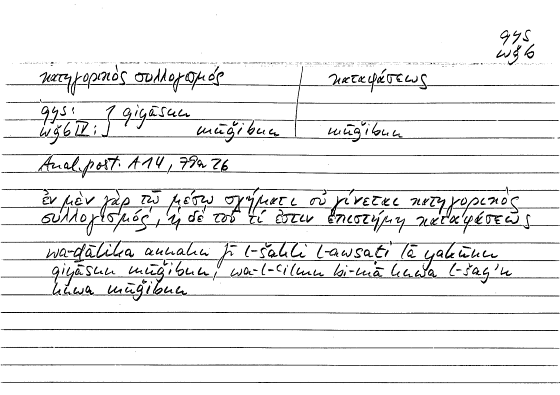 qys
wǧb
κατηγορικὸς συλλογισμός καταφάσεως
qys: } qiyāsun
wǧb IV: mūǧibun mūǧibun
Anal. post. A 14, 79a 26
ἐν μὲν γὰρ τῷ μέσῳ σχήματι οὐ γίνεται κατηγορικὸς
συλλογισμός, ἡ δὲ τοῦ τί ἐστιν ἐπιστήμη καταφάσεως
wa-ḏālika annahu fī l-šakli l-awsaṭi lā yakūnu
qiyāsun mūǧibun, wa-l-ʿilmu bi-mā huwa l-šayʾu
huwa mūǧibun